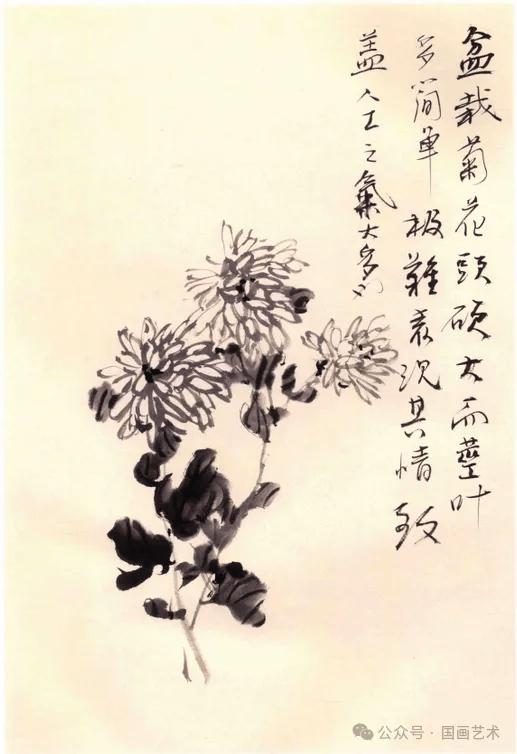 盆栽菊花頭硕大而莖叶
多简单 极難表现其情致
盖人工之氣太多
公众号·国画艺术